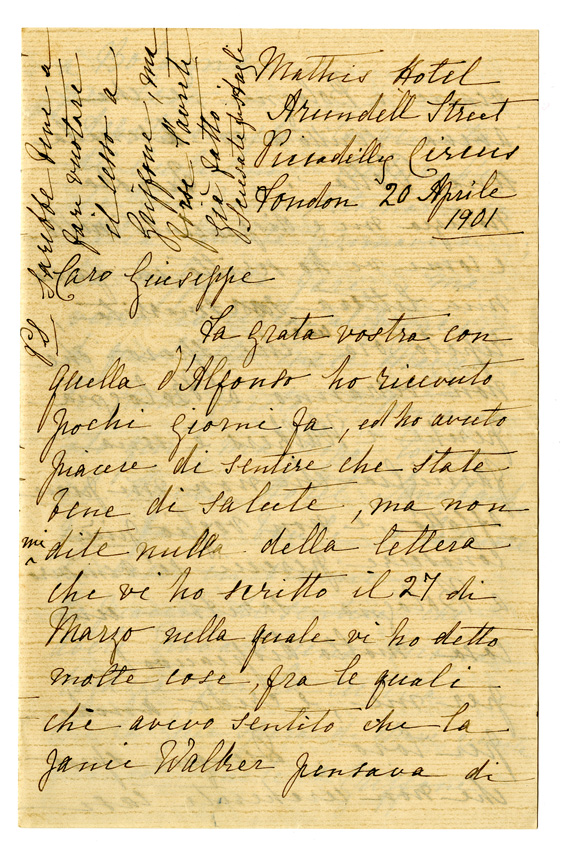 Mathis Hotel
Arundell Street
Piccadilly Circus
London 20 Aprile
1901
Caro Giuseppe
La grata vostra con
quella d'Alfonso ho ricevuto
pochi giorni fa, ed ho avuto
piacere di sentire che state
bene di salute, ma non
mi dite nulla della lettera
che vi ho scritto il 27 di
Marzo nella quale vi ho detto
molte cose, fra le quali
che avevo sentito che la
Janie Walker pensava di
PS Sarebbe bene a
fare vuotare
il cesso a
Griffone, ma
forse l'avete
già fatto